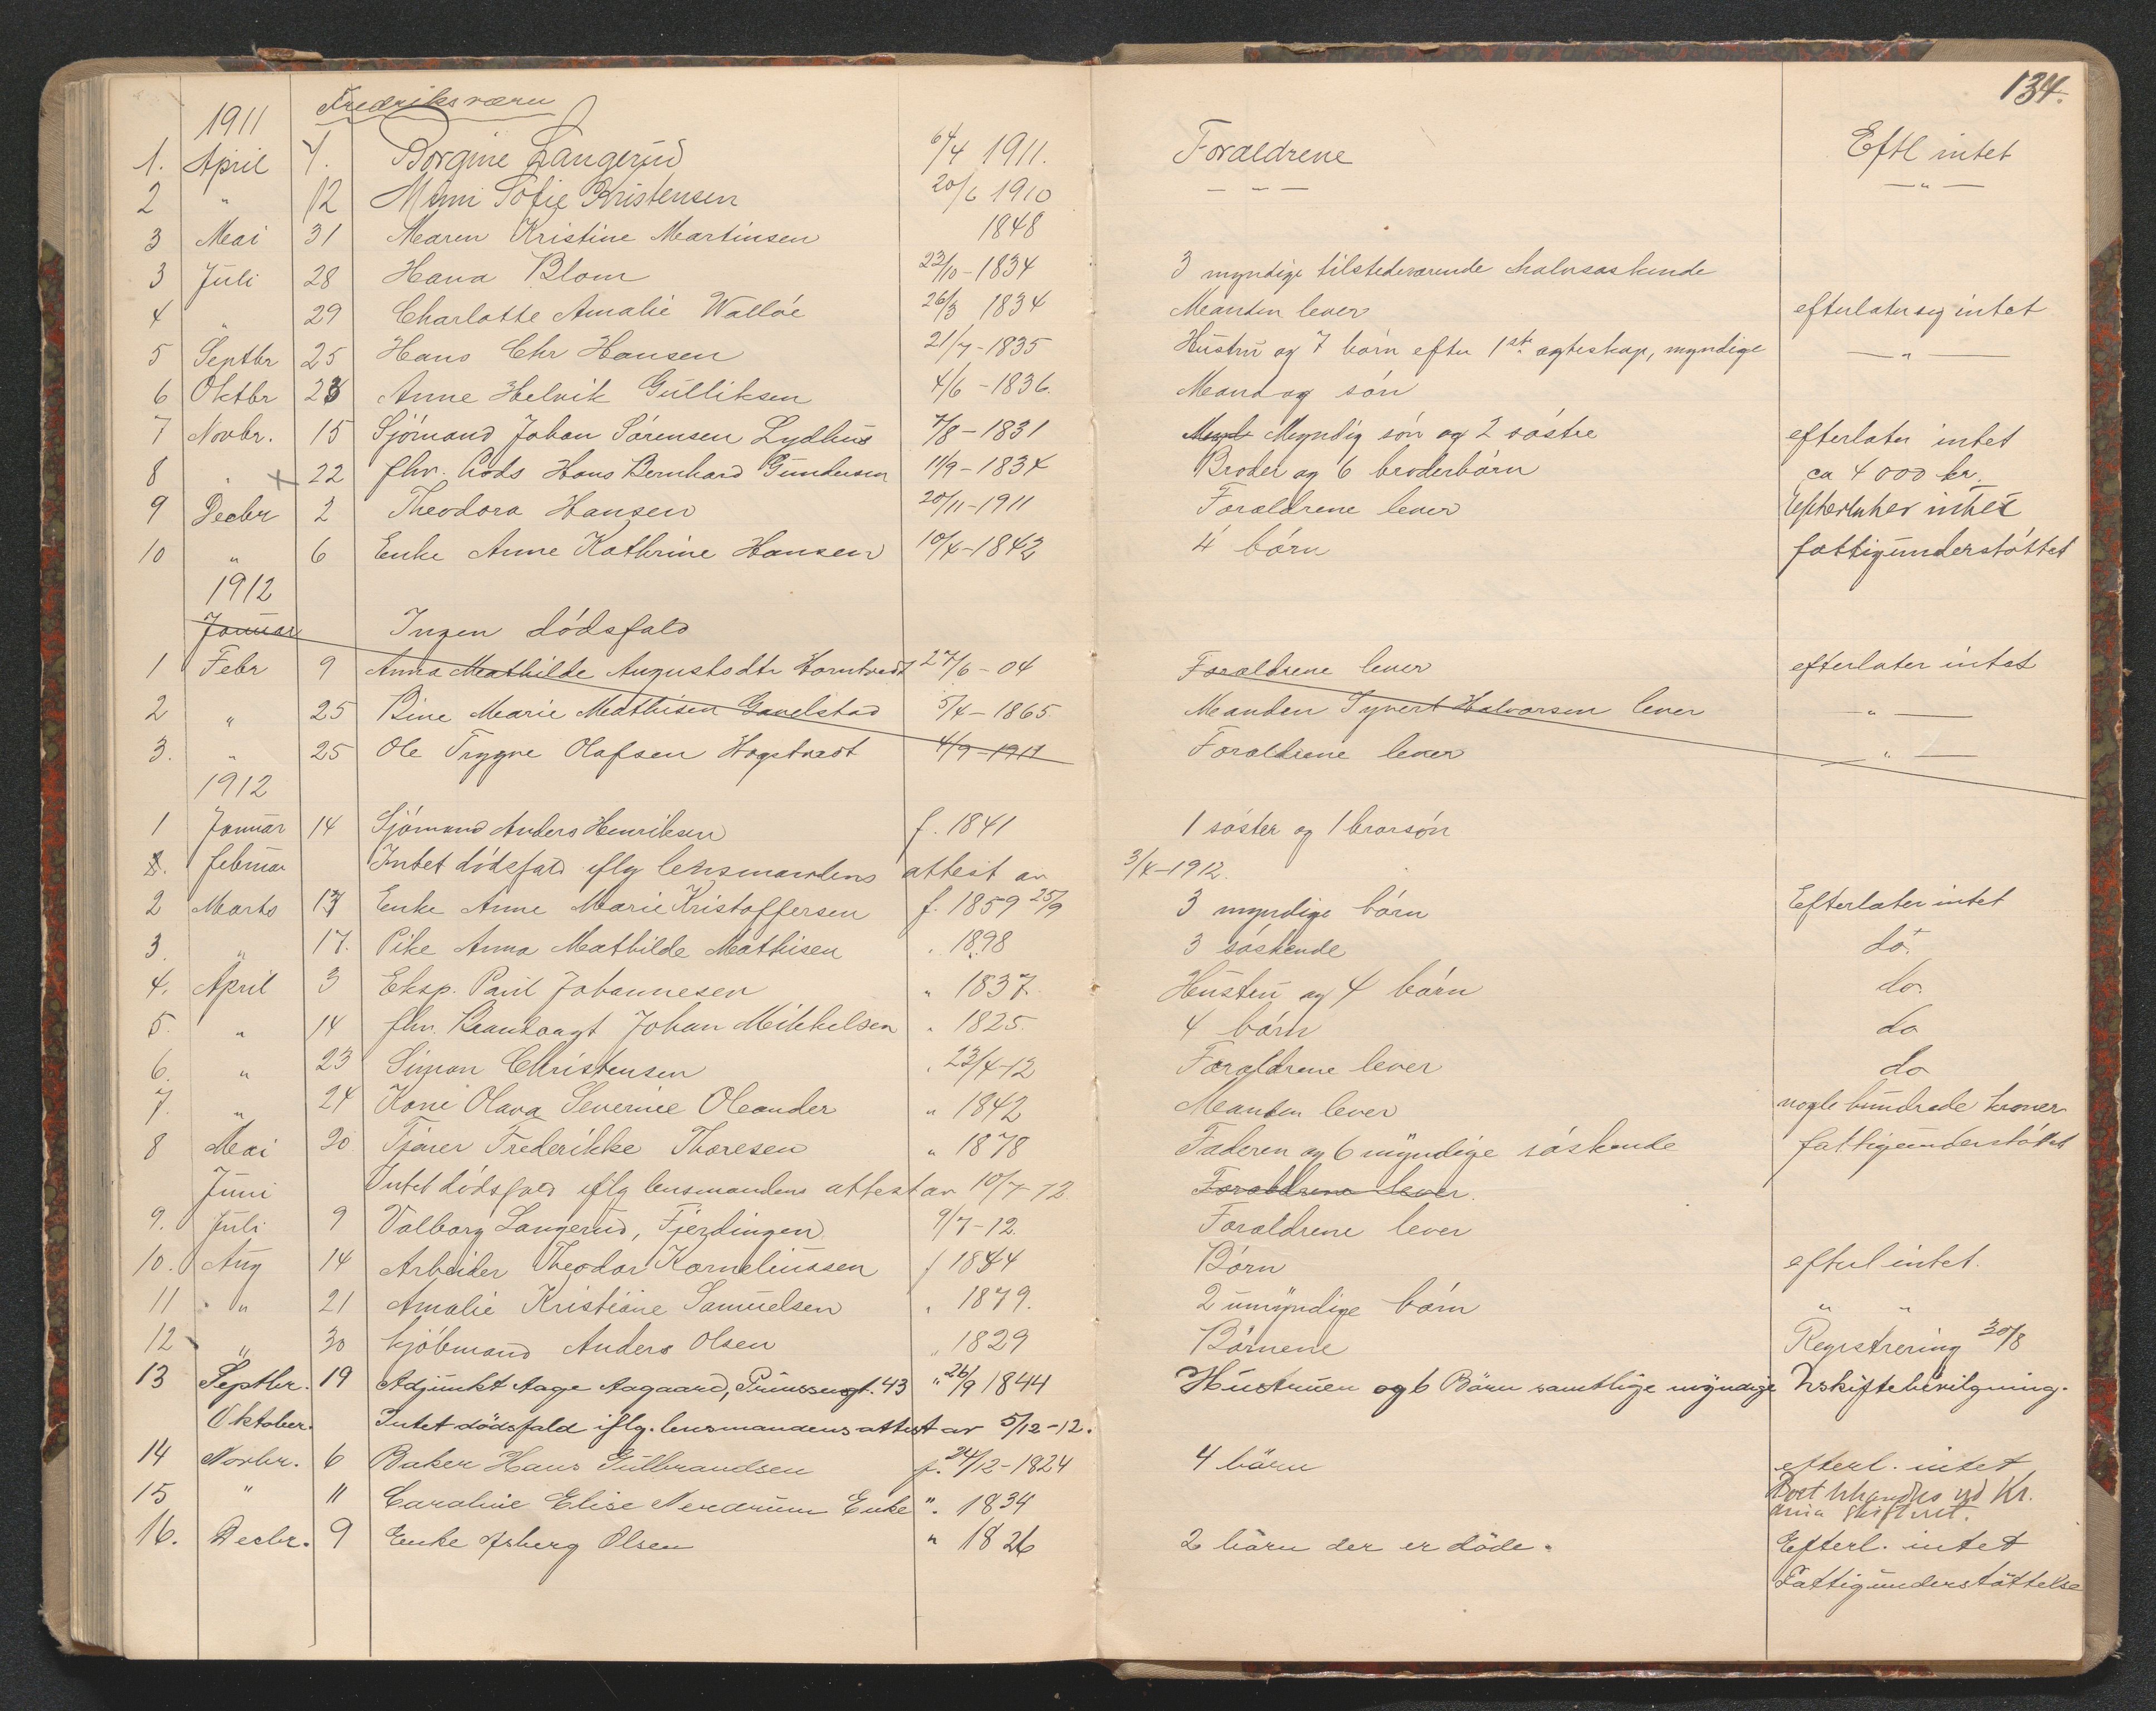 134.
Fredriksværn
1911
1. April 7. Borgine Langerud 6/4 1911. Forældrene Eftl intet
2 " 12 Mimi Sofie Kristensen 20/6 1910 — " — — " —
3 Mai 31 Maren Kristine Martinsen 1848
3 Juli 28 Hana Blom 22/10 - 1834 3 myndige tilstedeværende halvsøskende
4 " 29 Charlotte Amalie Walløe 26/3 1834 Manden lever efterlater seg intet
5 Septbr 25 Hans Chr Hansen 21/7 - 1835 Hustru og 7 børn efter 1ste egteskap, myndige — " —
6 Oktbr 23 Anne Helvik Gulliksen 4/6 - 1836. Mand og søn
7 Novbr. 15 Sjømand Johan Sørensen Lydhus 7/8 - 1831 Myndig søn og 2 søstre efterlater intet
8 " 22 fhv. Hans Bernhard Gundersen 11/9 - 1834 Broder og 6 broderbørn ca 4000 kr.
9 Decbr 2 Theodora Hansen 20/11 - 1911 Forældrene lever Efterlater intet
10 " 6 Enke Anne Kathrine Hansen 10/4 - 1842 4 børn fattigunderstøttet
1912
Januar Ingen dødsfald
1 Febr 9 Anna Mathilde Augustsdtr Horntvedt 27/6 - 04 Forældrene lever efterlater intet
2 " 25 Bine Marie Mathisen Gavelstad 5/4 - 1865. Manden Syvert Halvorsen lever — " —
3. " 25 Ole Trygve Olafsen Hogstvedt 4/9 - 1911 Forældrene lever — " —
1912
1 Januar 14 Sjømand Anders Henriksen f. 1841 1 søster og 1 brorsøn
februar Intet dødsfald iflg lensmandens attest av 3/4 - 1912.
2 Marts 17 Enke Anne Marie Kristoffersen f. 1859 25/9 3 myndige børn Efterlater intet
3. " 17. Pike Anna Mathilde Mathisen " 1898 3 søskende do.
4. April 3 Eksp. Paul Johannesen " 1837. Hustru og 4 børn do.
5. " 14 fhv. Johan Mikkelsen " 1825. 4 børn do
6. " 23 Simon Christensen " 23/4-12 Forældrene lever do
7. " 24 Kone Olava Severine Oleander " 1842 Manden lever nogle hundrede kroner
8 Mai 20 Tjener Frederikke Thoresen " 1878 Faderen og 6 myndige søskende fattigunderstøttet
Juni Intet dødsfald iflg lensmandens attest av 10/7 - 12. Forældrene lever.
9. Juli 9 Valborg Langerud, Fjerdingen 9/7 - 12. Forældrene lever
10. Aug 14 Arbeider Theodor Korneliussen f 1844 Børn efterl intet.
11 " 21 Amalie Kristiane Samuelsen " 1879. 2 umyndige børn " "
12 " 30 Kjøbmand Anders Olsen " 1829 Børnene Registrering 30/8
13 Septbr. 19 Adjunkt Aage Aagaard, Prinsensgt. 43 " 26/9 1844 Hustruen og 6 Börn samtlige myndige Uskiftebevilgning.
Oktober. Intet dödsfald iflg. lensmandens attest av 5/12-12.
14 Novbr. 6 Baker Hans Gulbrandsen f. 24/12-1824 4 börn efterl. intet
15 " 11 Caroline Elise Nerdrum Enke ". 1834 Boet behandles ved Kr.
ania skifteret.
16. Decbr. 9 Enke Asberg Olsen " 1826 2 börn der er döde. Efterl. intet
Fattigunderstöttelse